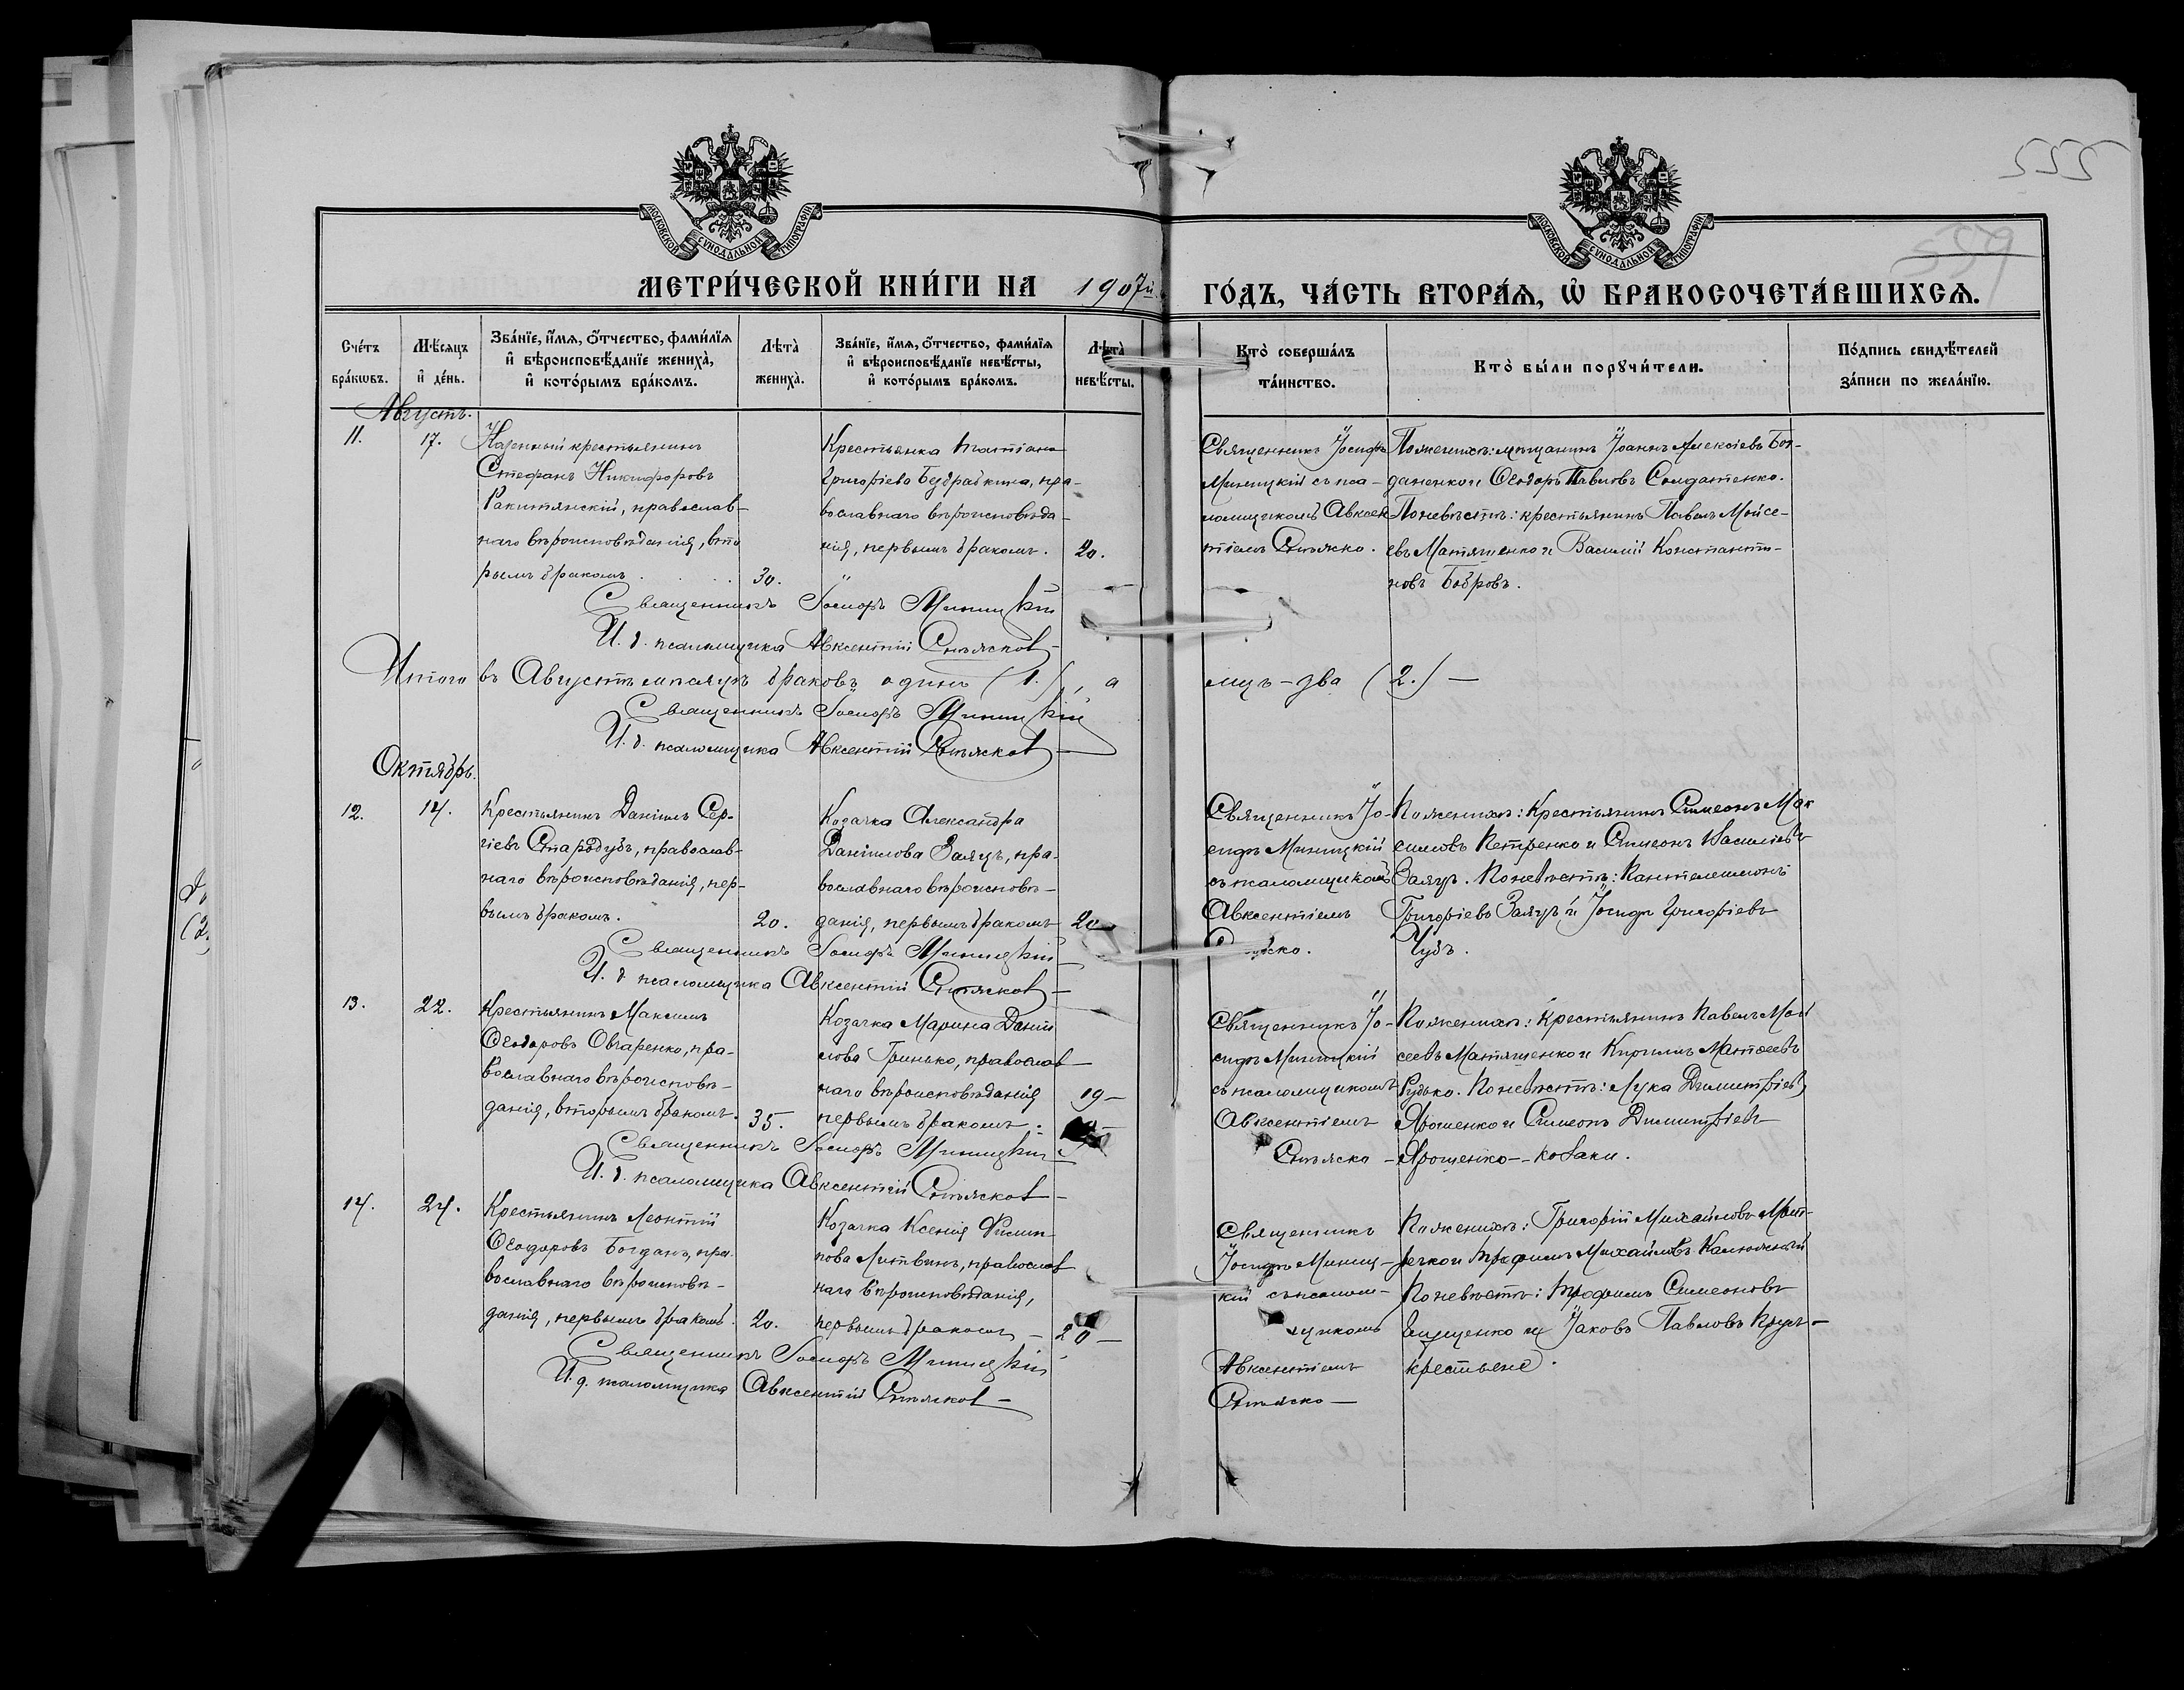 555
559
МОСКОВСКОЙ СУНОДАЛЬНОЙ ТИПОГРАФІИ
МОСКОВСКОЙ СУНОДАЛЬНОЙ ТИПОГРАФІИ
МЕТРИ́ЧЕСКОЙ КНИ́ГИ НА 1907й ГО́ДЪ, ЧА́СТЬ ВТОРА́Ѧ, Ѡ҆ БРАКОСОЧЕТА́ВШИХСѦ.
Сче́тъ бра́кѡвъ.
Мѣ́сяцъ и҆ де́нь.
Зва́нїе, и҆́мѧ, ѻ҆́тчество, фами́лїѧ и҆ вѣроисповѣ́данїе жениха̀, и҆ кото́рымъ бра́комъ.
Лѣта̀ жениха̀.
Зва́нїе, и҆́мѧ, ѻ҆́тчество, фами́лїѧ и҆ вѣроисповѣ́данїе невѣ́сты, и҆ кото́рымъ бра́комъ.
Лѣта̀ невѣ́сты.
Кто̀ соверша́лъ та́инство.
Кто̀ бы́ли порꙋчи́тели.
По́дпись свидѣ́телей за́писи по жела́нїю.
Августъ.
11.
17.
Казенный крестьянинъ
Стефанъ Никифоровъ
Ракитянскій, православ-
наго вѣроисповѣданія, вто
рымъ бракомъ
30.
Крестьянка Татіана
Григоріева Бедрабкина, пра-
вославнаго вѣроисповѣда-
нія, первымъ бракомъ.
20.
Священникъ Іосифъ
Миницкій съ пса-
ломщикомъ Авксен
тіемъ Стяжко.
По женихѣ: мѣщанинъ Іоаннъ Алексіевъ Бог-
даненко и Ѳеодоръ Павловъ Солдатенко.
По невѣстѣ: крестьянинъ Павелъ Мойсе-
евъ Матяшенко и Василій Константи-
новъ Бобровъ.
Священникъ Іосифъ Миницкій
И. д. псаломщика Авксентій
Итого въ Августѣ мѣсяцѣ браковъ одинъ (1.), а лицъ - два (2.) —
Священникъ Іосифъ Миницкій
И. д. псаломщика Авксентій
Октябрь.
12.
14.
Крестьянинъ Даніилъ Сер-
гіевъ Стародубъ, православ-
наго вѣроисповѣданія, пер-
вымъ бракомъ.
20.
Козачка Александра
Даніилова Заяцъ, пра-
вославнаго вѣроисповѣ-
данія, первымъ бракомъ
20
Священникъ Іо-
сифъ Миницкій
съ псаломщикомъ
Авксентіемъ
По женихѣ: Крестьянинъ Симеонъ Мак
симовъ Петренко и Симеонъ Василіевъ
Заяцъ. По невѣстѣ: Пантелеимонъ
Григоріевъ Заяцъ и Іосифъ Григоріевъ
Чубъ.
Священникъ Іосифъ Миницкій
И. д. псаломщика Авксентій
13.
22.
Крестьянинъ Максимъ
Ѳеодоровъ Овчаренко, пра-
вославнаго вѣроисповѣ-
данія, вторымъ бракомъ.
35.
Козачка Марина Даніи
лова Гринько, православ
наго вѣроисповѣданія
первымъ бракомъ.
19 -
Священникъ Іо-
сифъ Миницкій
съ псаломщикомъ
Авксентіемъ
По женихѣ: Крестьянинъ Павелъ Мой
сеевъ Матяшенко и Кириллъ Матѳеевъ
Рудько. По невѣстѣ: Лука Димитріевъ
Ярошенко и Симеонъ Димитріевъ
Ярошенко - козаки.
Священникъ Іосифъ Миницкій
И. д. псаломщика Авксентій
14.
24.
Крестьянинъ Леонтій
Ѳеодоровъ Богданъ, пра-
вославнаго вѣроисповѣ-
данія, первымъ бракомъ.
20.
Козачка Ксенія Филип
пова Литвинъ, православ
наго вѣроисповѣданія,
первымъ бракомъ -
20 -
Священникъ
Іосифъ Миниц-
кій съ псалом-
щикомъ
Авксентіемъ
По женихѣ: Григорій Михайловъ
Трофимъ Михайловъ
По невѣстѣ: Трофимъ Симеоновъ
и Іаковъ Павловъ
крестьяне.
Священникъ Іосифъ Миницкій
И. д. псаломщика Авксентій